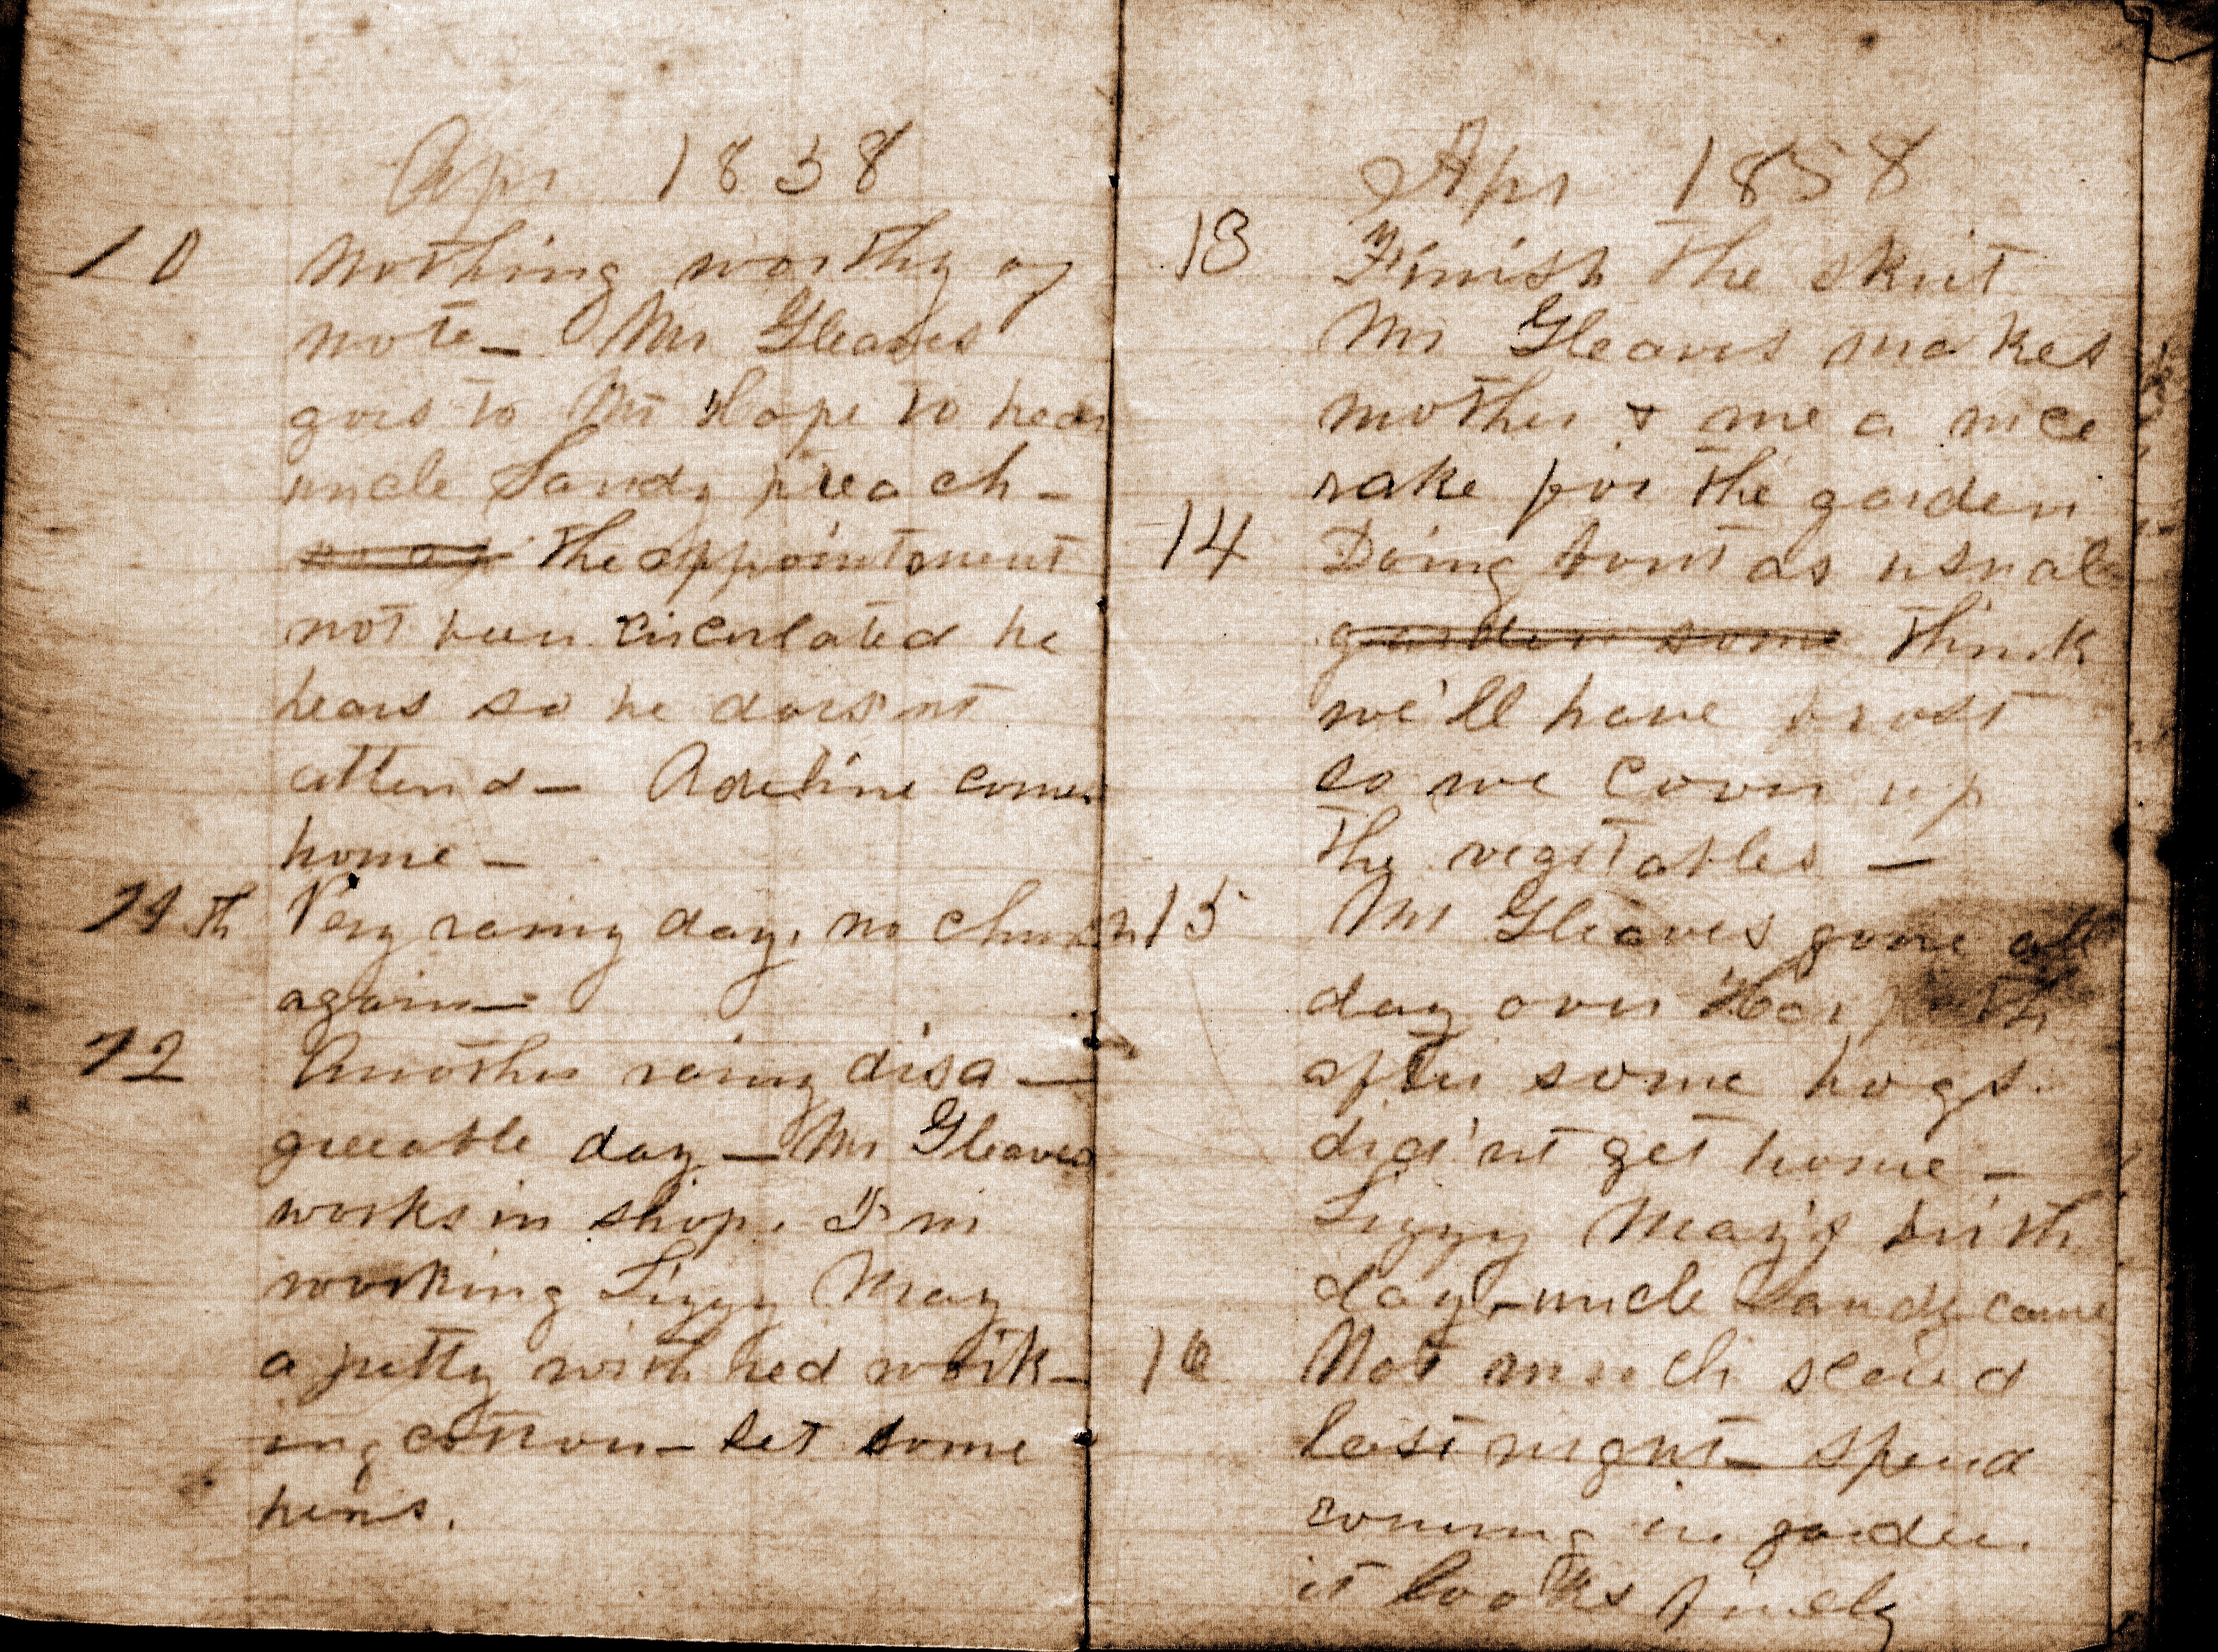 Apr 1858
10 Nothing worthy of
note_ Mr Gleaves
goes to Mt Hope to hear
uncle Sandy preach_
the appointment
not been circulated he
hears so he does'nt
attend_ Adeline comes
home_
11th Very rainy day, no church
again_
12 Another rainy disa_
greeable day_ Mr Gleaves
works in shop. I'm
working Lizzy May
a petty with red work_
ing cotton_ set some
hens.
Apr 1858
13 Finish the skirt
Mr Gleaves makes
mother & me a nice
rake for the garden
14 Doing bout as usual
garden some think
we'll have frost
so we cover up
the vegetables_
15 Mr Gleaves gone all
day over Harpeth
after some hogs.
did'nt get home_
Lizzy May's birth
day_uncle Sandy came
16 Not much
last night_ spend
in garden.
it looks finely